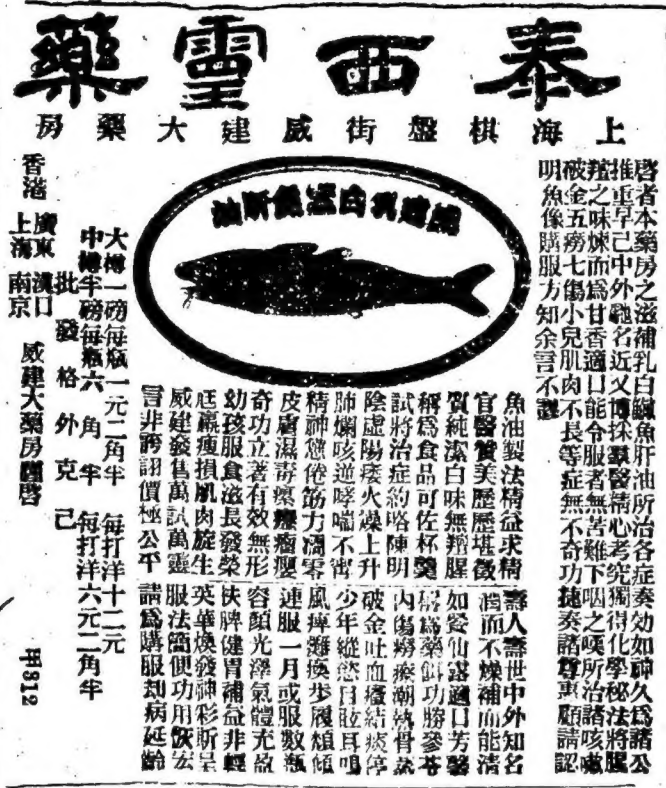 泰西靈藥
上海棋盤街威建大藥房
啓者本藥房之滋補乳白鰵魚肝油所治各症奏効如神久爲諸公
推重早已中外馳名近又博採羣醫精心考究獨得化學秘法將腥
羶之味煉而爲甘香適口能令服者無苦難下咽之嘆所治諸咳嗽
破金五癆七傷小兒肌肉不長等症無不奇功捷奏諸尊惠顧請認
明魚像購服方知余言不謬
威建乳白鰵魚肝油
魚油製法精益求精
官醫贊美歷歷堪徵
質純潔白味無羶腥
稱爲食品可佐杯羹
試將治症約略陳明
陰虛陽痿火燥上升
肺爛咳逆哮喘不寗
精神憊倦筋力凋零
皮膚濕毒瘰癧瘤癭
奇功立著有效無形
幼孩服食滋長發榮
尫羸瘦損肌肉旋生
威建發售萬試萬靈
言非誇詡價極公平
壽人壽世中外知名
潤而不燥補而能清
如餐仙露適口芳馨
爲藥餌功勝參苓
內傷癆瘵潮熱骨蒸
破金吐血結痰停
少年縱慾目眩耳鳴
風痺癱瘓步履頹傾
連服一月或服數瓶
容顏光澤氣體充盈
扶脾健胃補益非輕
英華煥發神彩斯呈
服法簡便功用恢宏
請爲購服却病延齡
大樽一磅每瓶一元二角半 每打洋十二元
中樽半磅每瓶六角半 每打洋六元二角半
批發格外克己
廣東 漢口
香港 上海 南京 威建大藥房謹啓
甲312